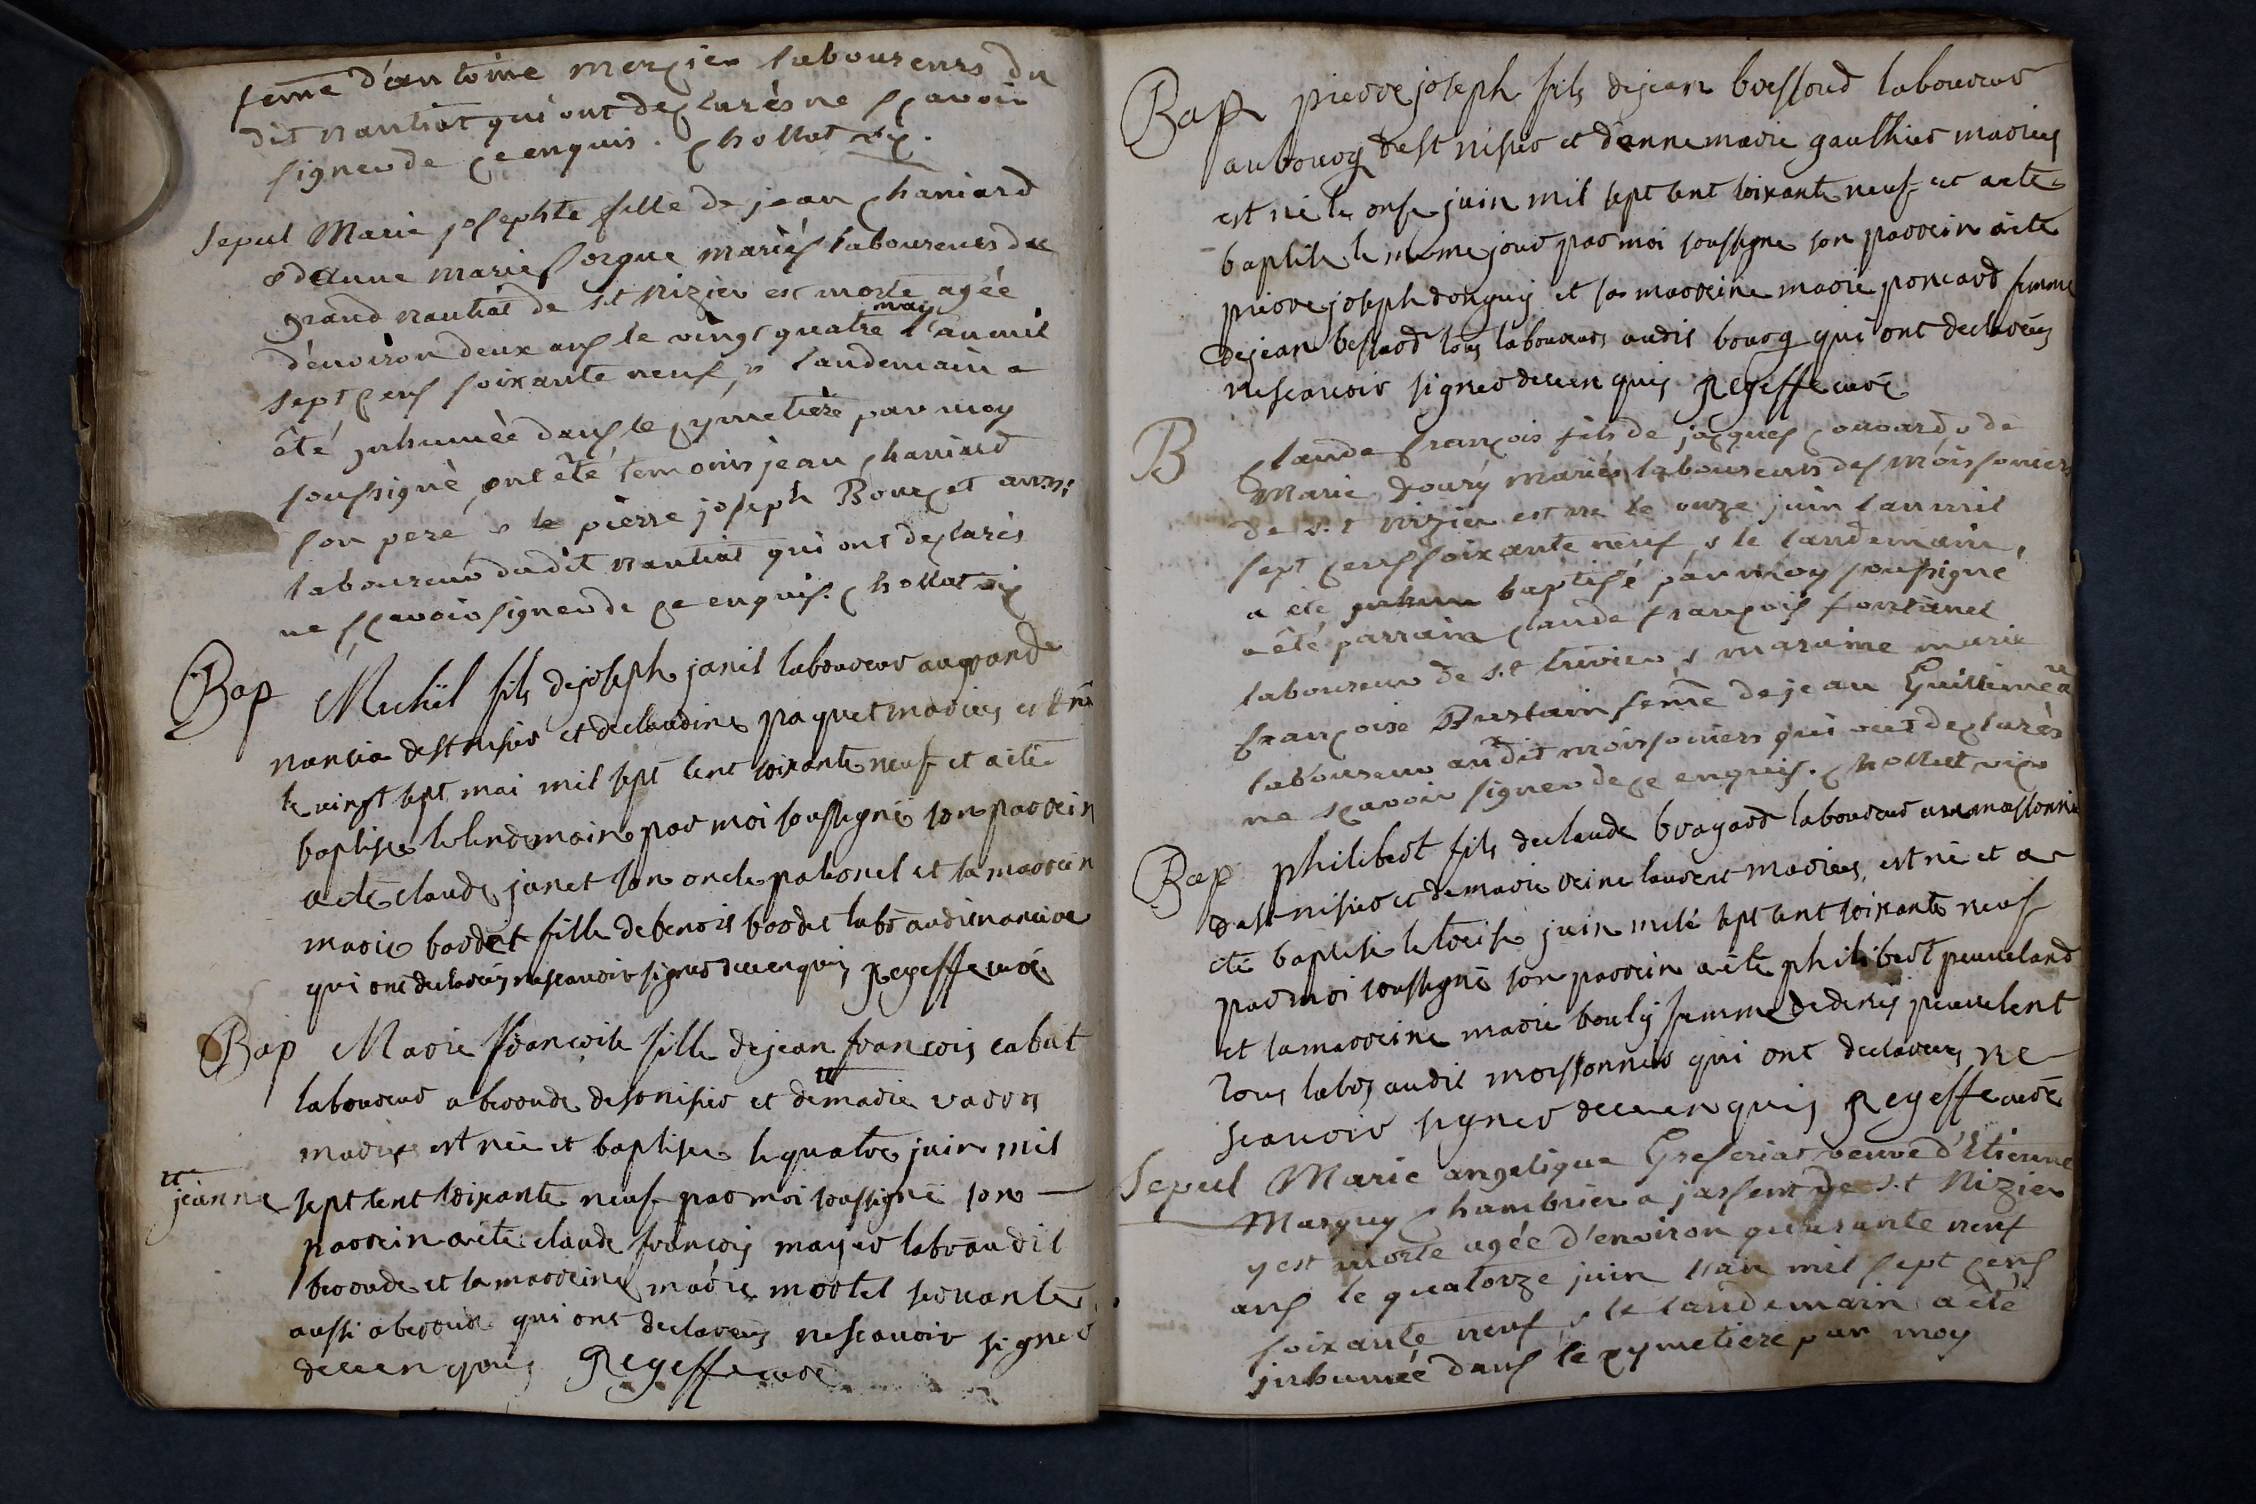 feme d'antoine mercier laboureurs du
dit nantiat qui ont declarés ne scavoir
signer de ce enquis. chollat vic.
Sepul Marie josephte fille de jean chaniard
& d'anne marie sorgue mariés laboureurs du
grand nantiat de s.t Nizier est morte agée
d'environ deux ans le vingt quatre may l'an mil
sept cens soixante neuf, & landemain a
été inhumée dans le cymetière par moy
soussigné, ont été temoins jean chaniard
son pere & le pierre joseph Bourcet aussi
laboureurs dudit nantiat qui ont declarés
ne scavoir signer de ce enquis. chollat vic
Bap Michel fils de joseph janet laboureur au grand
nancia de st nisier et de claudine paquet mariés est né
le vingt sept mai mil sept cent soixante neuf et a eté
baptise le lendemain par moi soussigné son parrein
a eté claude janet son oncle paternel et la marrein
marie bardet fille de benoit bardet labr audit nancia
qui ont declarés ne scavoir signer de ce enquis Regeffe curé
Bap Marie francoise fille de jean francois cabut
laboureur a beronde de st nisier et de marie varos
mariés est née et baptisée le quatre juin mil
jeanne sept cent soixante neuf par moi soussigné son
parrein a eté claude françois mayer labr audit
beronde et la marreine marie mortel servante
aussi a beronde qui ont declarés ne scavoir signer
de ce enquis Regeffe curé
Bap pierre joseph fils de jean bressoud laboureur
au bourg de st nisier et d'anne marie gaulthier mariés
est né le onse juin mil sept cent soixante neuf et a eté
baptisé le meme jour par moi soussigné son parrein a eté
pierre joseph donguy et sa marreine marie poncard femme
de jean bessard tous laboureurs audit bourg qui ont declarés
ne scavoir signer de ce enquis Regeffe curé
B claude françois fils de jacques couvard & de
Marie doury mariés laboureurs des moissoniers
de s.t nizier est né le onze juin l'an mil
sept cens soixante neuf, & le landemain,
a été baptisé par moy soussigné
a été parrain claude françois fontanel
laboureur de s.t trivier, & maraine marie
françoise Bustain feme de jean Guillemin
laboureur audit moissoniers qui ont declarés
ne scavoir signer de ce enquis. chollat vic
Bap philibert fils de claude bragard laboureur au moissonnie
de st nisier et de marie reine laurent mariés, est né et a
eté baptisé le treise juin mil sept cent soixante neuf
par moi soussigné son parrein a eté philibert peuveland
et la marreine marie bouly femme de denis peuvelent
tous labrs audit moissonnier qui ont declarés ne
scavoir signer de ce enquis Regeffe curé
Sepul Marie angelique Greferiat veuve d'Etienne
Marguy chambrier a jassent de s.t Nizier
y est morte agée d'environ quarante neuf
ans le quatorze juin l'an mil sept cens
soixante neuf, & le landemain a été
inhumée dans le cymetiere par moy